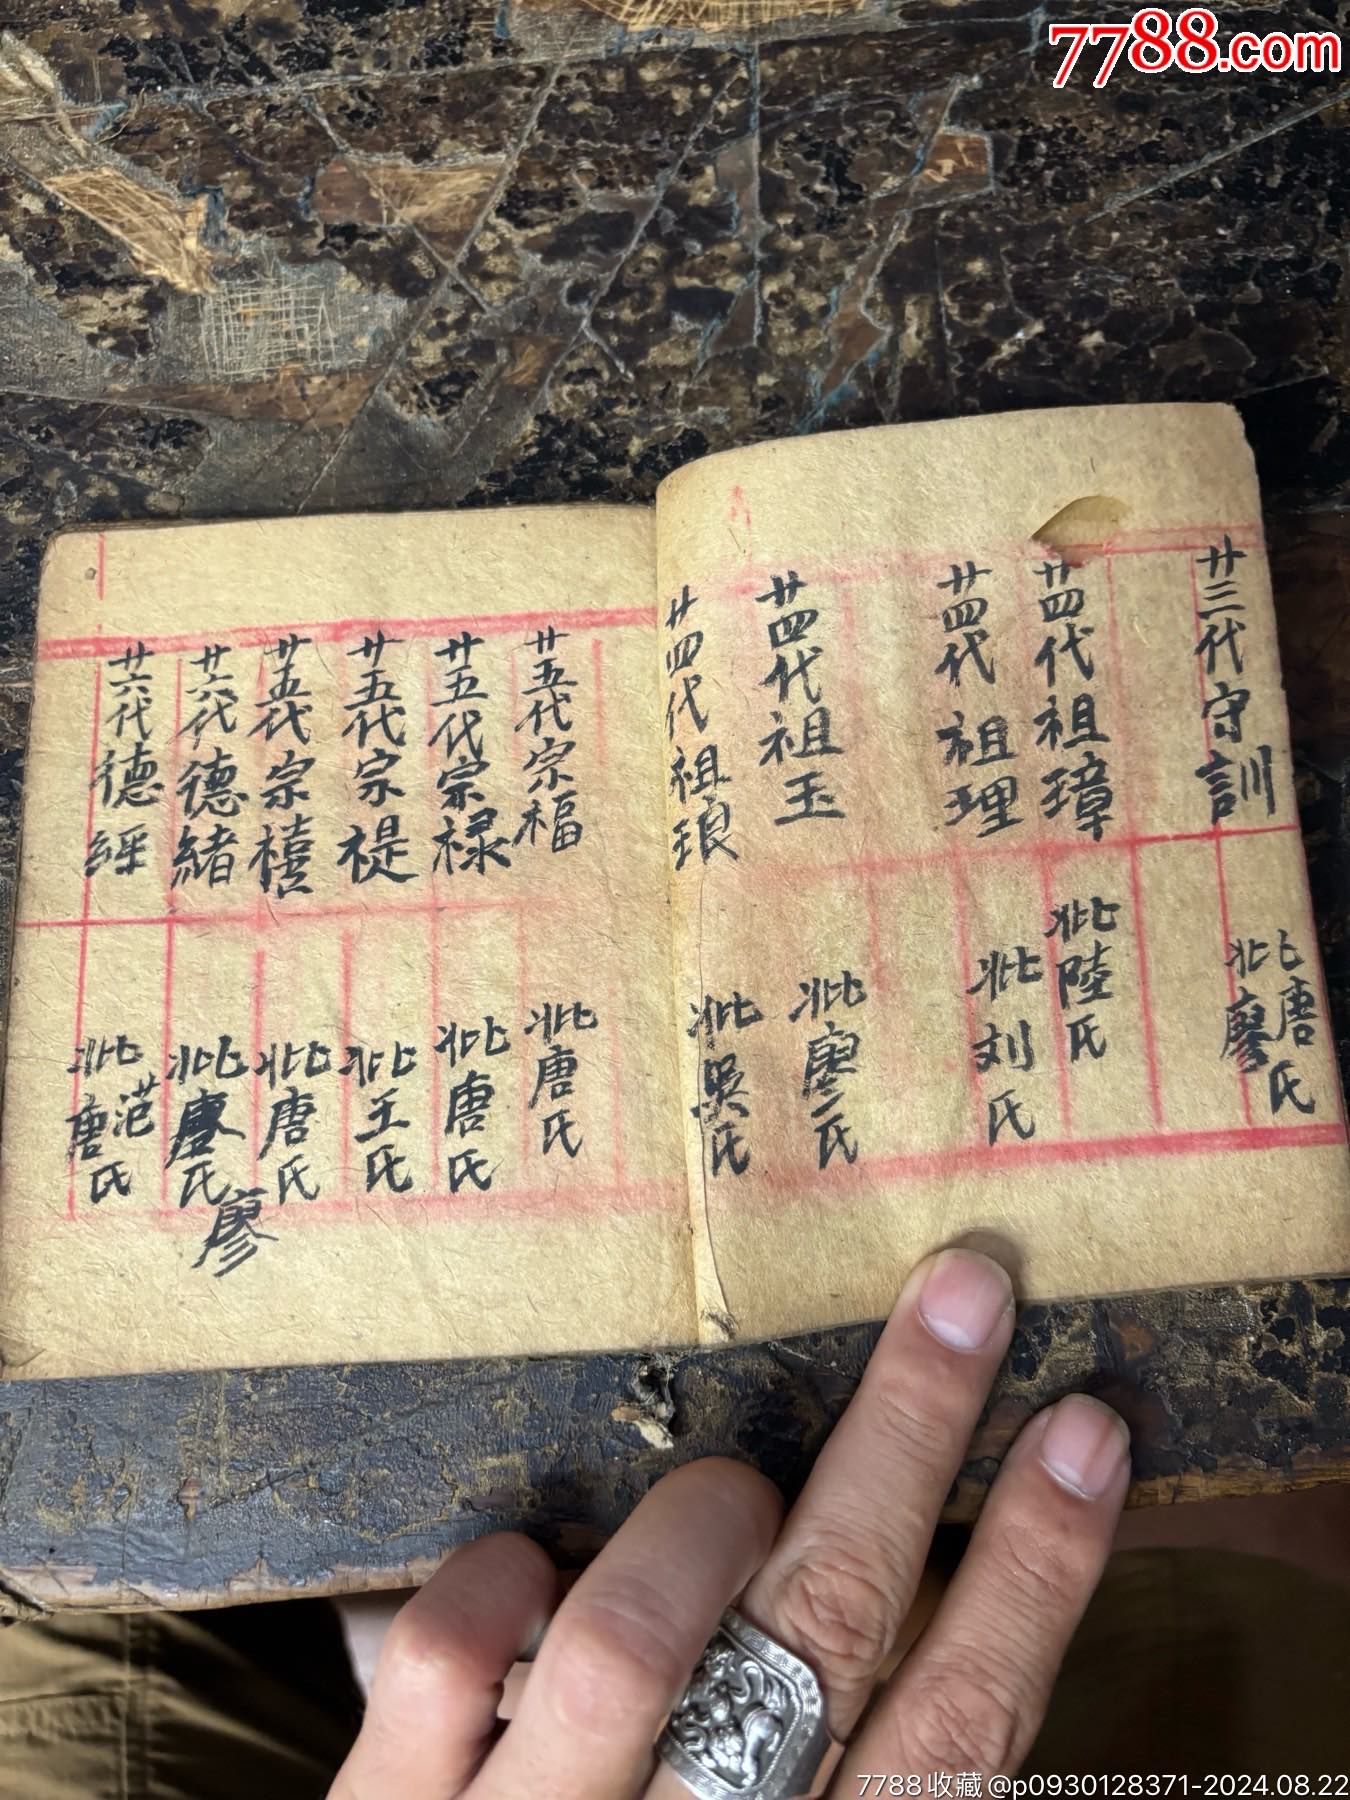 7788.com
廿三代守訓
妣唐廖氏
廿四代祖璋
妣陸氏
廿四代祖理
妣刘氏
廿四代祖玉
妣廖氏
廿四代祖琅
妣吳氏
廿五代宗福
妣唐氏
廿五代宗禄
妣唐氏
廿五代宗禔
妣王氏
廿五代宗禧
妣唐氏
廿六代德緒
妣氏廖
廿六代德經
妣范唐氏
7788收藏@p0930128371-2024.08.22